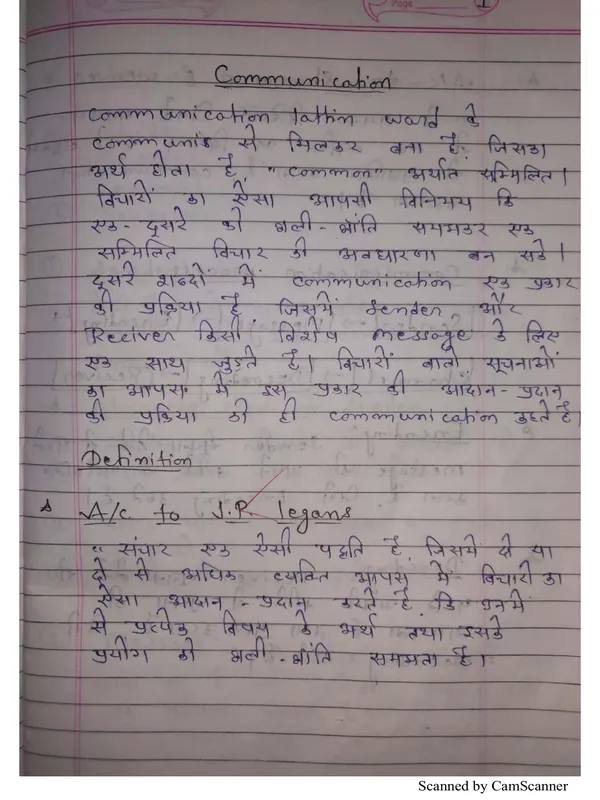 Page
1
Communication
Communication lattin ward के
communis से मिलकर बना है, जिसका
अर्थ होता है, "common" अर्थात सम्मिलित।
विचारों का ऐसा आपसी विनिमय कि
एक-दूसरे को भली-भांति समझकर एक
सम्मिलित विचार की अवधारणा बन सके।
दूसरे शब्दों में communication एक प्रकार
की प्रक्रिया है जिसमें sender और
Reciver किसी विशेष message के लिए
एक साथ जुड़ते है। विचारों बातो सूचनाओं
का आपस में इस प्रकार की आदान-प्रदान
की प्रक्रिया को ही communication कहते है।
Definition
A/c to J.P. legans
" संचार एक ऐसी पद्दति है, जिसमे दो या
दो से अधिक व्यक्ति आपस में विचारो का
ऐसा आदान-प्रदान करते है कि उनमें
से प्रत्येक विषय के अर्थ तथा इसके
प्रयोग को भली-भांति समझता है।
Scanned by CamScanner